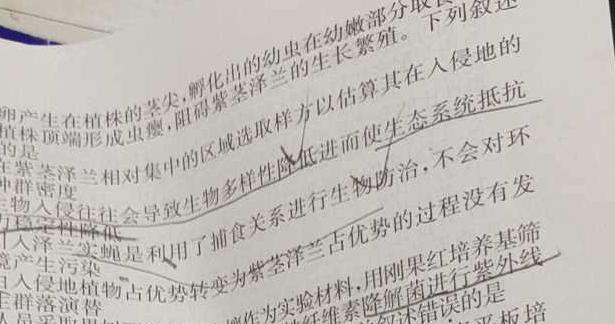 卵产生在植株的茎尖,孵化出的幼虫在幼嫩部分取食
植株顶端形成虫瘿,阻碍紫茎泽兰的生长繁殖。下列叙述
的是
在紫茎泽兰相对集中的区域选取样方以估算其在入侵地的
种群密度
生物入侵往往会导致生物多样性降低进而使生态系统抵抗
力稳定性降低
引入泽兰实蝇是利用了捕食关系进行生物防治,不会对环
境产生污染
由入侵地植物占优势转变为紫茎泽兰占优势的过程没有发
生群落演替
作为实验材料,用刚果红培养基筛
纤维素降解菌进行紫外线
叙述错误的是
平板培